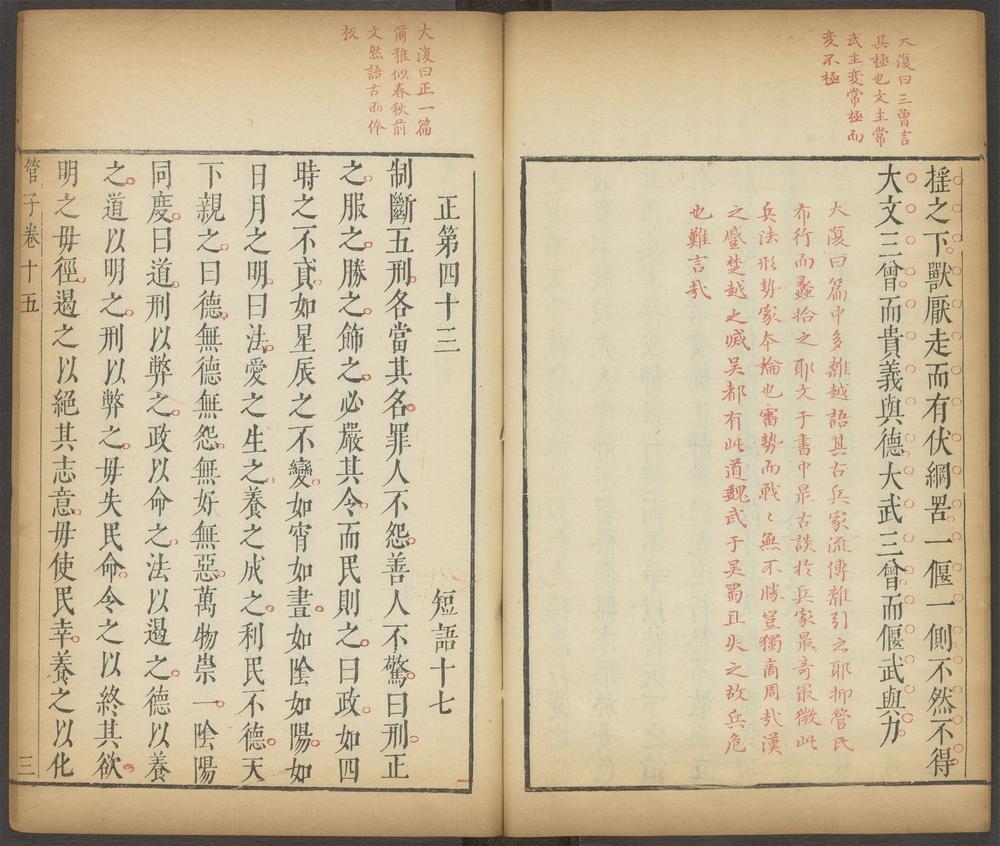 大復曰三曾言
其極也文主常
武主变常極而
变不極
揺之下獸厭走而有伏網罟一偃一側不然不得
大文三曾而貴義與德大武三曾而偃武與力
大復曰篇中多雜越語其古兵家流傳雜引之耶抑管氏
布行而蠡拾之耶文于書中最古談於兵家最奇最微此
兵法形勢家本論也審勢而戰〻無不勝豈獨商周哉漢
之蹙楚越之滅吳都有此道魏武于吳蜀且失之故兵危
也難言哉
大復曰正一篇
爾雅似春秋前
文然語古而修
正第四十三 短語十七
制斷五刑各當其名罪人不怨善人不驚曰刑正
之服之勝之飾之必嚴其令而民則之曰政如四
時之不貣如星辰之不變如宵如晝如陰如陽如
日月之明曰法愛之生之養之成之利民不德天
下親之曰德無德無怨無好無惡萬物崇一陰陽
同度曰道刑以弊之政以命之法以遏之德以養
之道以明之刑以弊之毋失民命令之以終其欲
明之毋徑遏之以絕其志意毋使民幸養之以化
管子卷十五 三